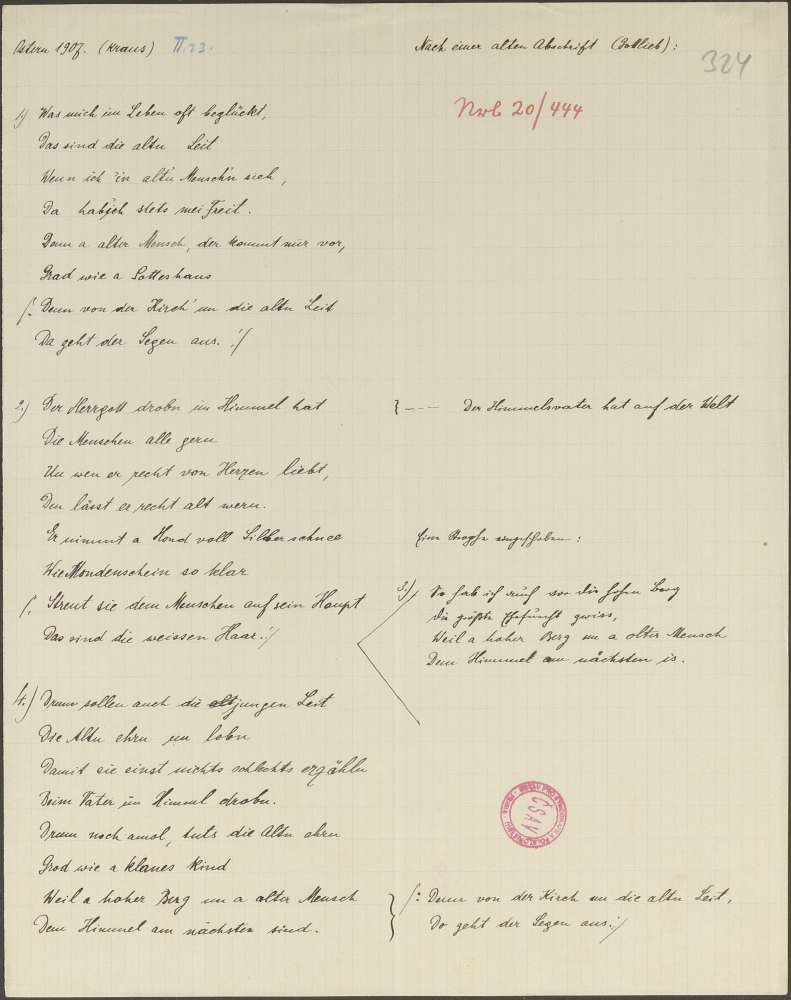 Ostern 1907. (Kraus) II.23.
Nach einer alten Abschrift (Gottlieb):
324
Nrb 20/444
1) Was mich im Leben oft beglückt,
Das sind die altn Leit
Wenn ich 'in alt'n Mensch'n sieh,
Da hab ich stets mei Freit.
Denn a alter Mensch, der kommt mir vor,
Grad wie a Gotteshaus
/: Denn von der Kirch' un die altn Leit
Da geht der Segen aus. :/
2.) Der Herrgott drobn im Himmel hat
} --- Der Himmelsvater hat auf der Welt
Die Menschen alle gern
Un wen er recht von Herzen liebt,
Den lässt er recht alt wern.
Er nimmt a Hand voll Silberschnee
Wie Mondenschein so klar
/: Streut sie dem Menschen auf sein Haupt
Das sind die weissen Haar. :/
Eine Strophe eingeschoben:
3.) So hab ich auch vor die hohen Berg
die größte Ehrfurcht gwiss,
Weil a hoher Berg un a alter Mensch
Dem Himmel am nächsten is.
4.) Drum sollen auch die jungen Leit
Die Altn ehrn un lobn
Damit sie einst nichts schlechts erzähln
Beim Vater im Himmel drobn.
Drum noch amol, tuts die Altn ehrn
Grod wie a klanes Kind
Weil a hoher Berg un a alter Mensch
Dem Himmel am nächsten sind.
} /: Denn von der Kirch un die altn Leit,
Do geht der Segen aus :/
ČSAV